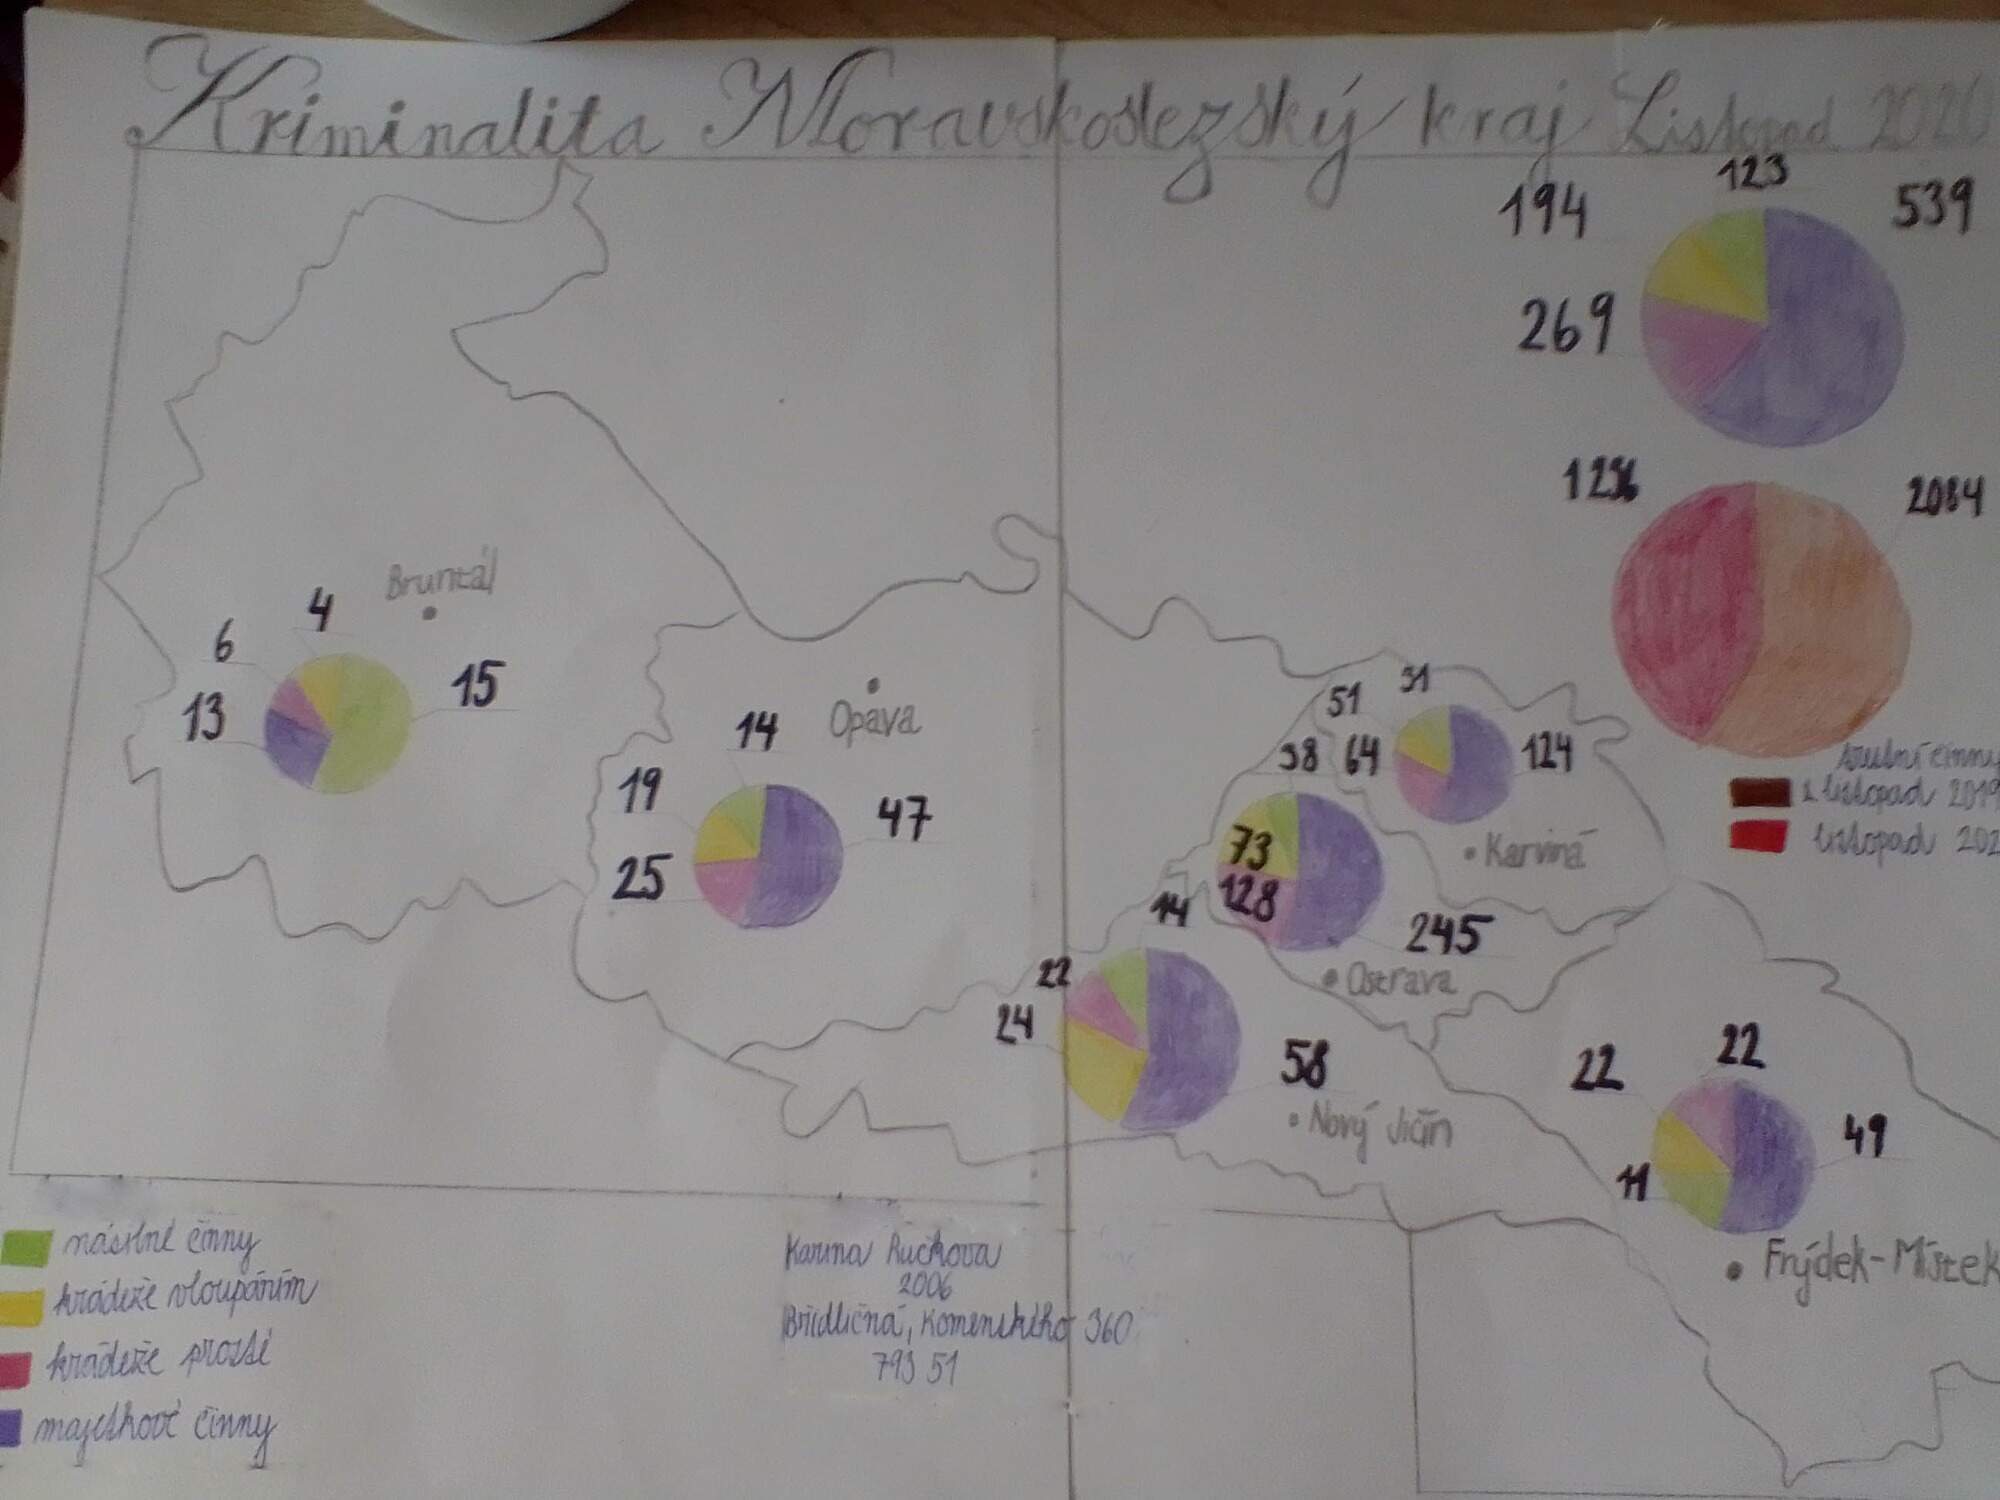 Kriminalita Moravskoslezský kraj Listopad 2020
123
194
539
269
1256
2084
Bruntál
4
6
15
13
Opava
14
19
47
25
31
51
38
64
124
73
Karviná
128
14
245
22
Ostrava
24
58
Nový Jičín
22
22
49
11
Frýdek-Místek
činny
listopad 2019
listopad 202
násilné činny
krádeže vloupáním
krádeže prosté
majetkové činny
Karina Ručkova
2006
Břidličná, Komenského 360
793 51